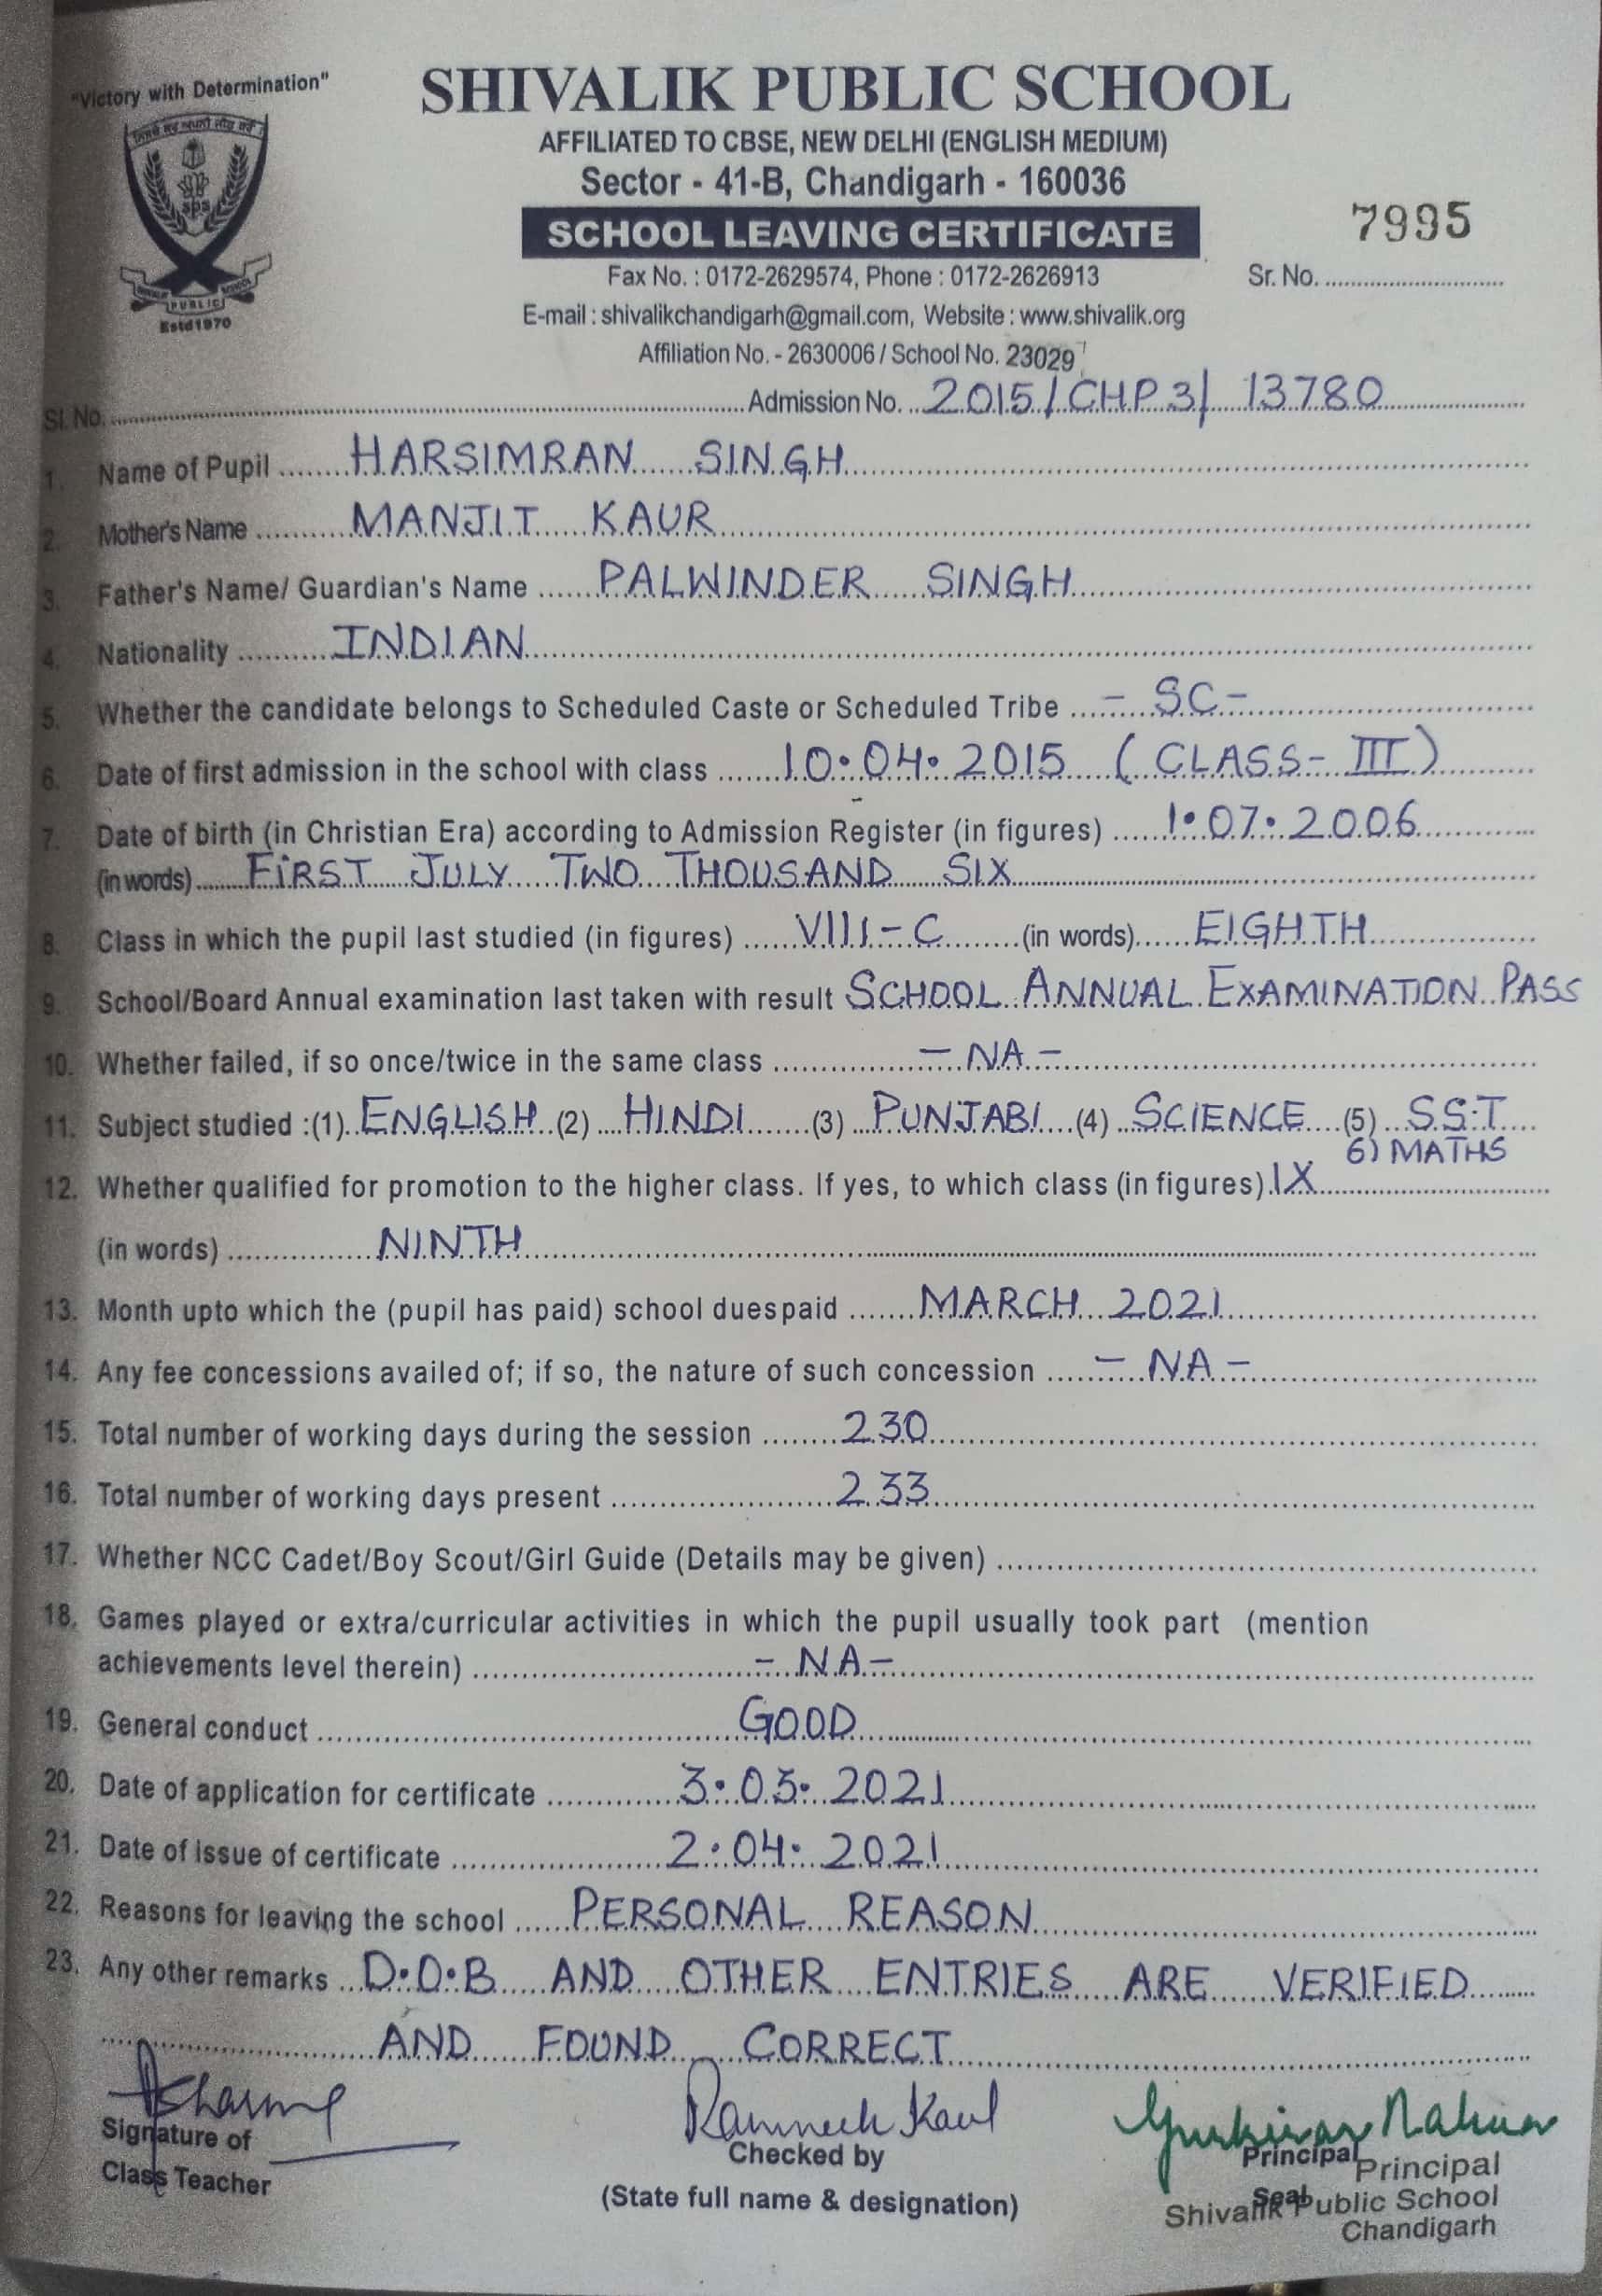 "Victory with Determination"
SHIVALIK PUBLIC SCHOOL
AFFILIATED TO CBSE, NEW DELHI (ENGLISH MEDIUM)
Sector - 41-B, Chandigarh - 160036
sps
SCHOOL LEAVING CERTIFICATE
7995
Fax No. : 0172-2629574, Phone : 0172-2626913
Sr. No.
PUBLIC
Estd 1970
E-mail : shivalikchandigarh@gmail.com, Website : www.shivalik.org
Affiliation No. - 2630006 / School No. 23029
Sl. No. Admission No. 2015/CHP3/ 13780
1. Name of Pupil HARSIMRAN SINGH
2. Mother's Name MANJIT KAUR
3. Father's Name/ Guardian's Name PALWINDER SINGH
4. Nationality INDIAN
5. Whether the candidate belongs to Scheduled Caste or Scheduled Tribe - SC -
6. Date of first admission in the school with class 10.04.2015 (CLASS- III)
7. Date of birth (in Christian Era) according to Admission Register (in figures) 1.07.2006
(in words) FIRST JULY TWO THOUSAND SIX
8. Class in which the pupil last studied (in figures) VIII-C (in words) EIGHTH
9. School/Board Annual examination last taken with result SCHOOL ANNUAL EXAMINATION PASS
10. Whether failed, if so once/twice in the same class - NA -
11. Subject studied :(1) ENGLISH (2) HINDI (3) PUNJABI (4) SCIENCE (5) S.S.T
6) MATHS
12. Whether qualified for promotion to the higher class. If yes, to which class (in figures) IX
(in words) NINTH
13. Month upto which the (pupil has paid) school dues paid MARCH 2021
14. Any fee concessions availed of; if so, the nature of such concession - NA -
15. Total number of working days during the session 230
16. Total number of working days present 233
17. Whether NCC Cadet/Boy Scout/Girl Guide (Details may be given)
18. Games played or extra/curricular activities in which the pupil usually took part (mention
achievements level therein) - NA -
19. General conduct GOOD
20. Date of application for certificate 3.03.2021
21. Date of issue of certificate 2.04.2021
22. Reasons for leaving the school PERSONAL REASON
23. Any other remarks D.O.B AND OTHER ENTRIES ARE VERIFIED
AND FOUND CORRECT
Signature of
Class Teacher
Checked by
(State full name & designation)
Principal
Seal
Principal
Shivalik Public School
Chandigarh